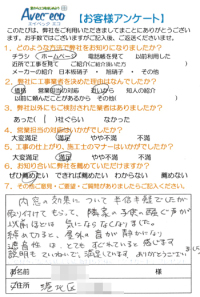 Avec eco 【お客様アンケート】
スペック エコ
このたびは、弊社をご利用いただきましてまことにありがとうございます。お手数ではございますがご記入後、ご返送くださいませ。
1. どのような方法で弊社をお知りになりましたか？
チラシ ホームページ 電話帳を見て 以前利用した
近所で工事を見て ご紹介
メーカーの紹介 日本板硝子 ・ 旭硝子 ・ その他
2. 弊社に工事業者を決めた理由はなんでしたか？
価格 営業担当の対応 知人の紹介
以前に頼んだことがあるから その他(
3. 弊社以外にもご検討された業者はありましたか？
あった( )社ぐらい なかった
4. 営業担当の対応はいかがでしたか？
大変満足 満足 やや不満 不満
5. 工事の仕上がり、施工のマナーはいかがでしたか？
大変満足 満足 やや不満 不満
6. お知り合いに弊社を薦めていただけますか？
ぜひ薦めたい できれば薦めたい わからない 薦めない
7. その他ご意見・ご要望・ご質問がありましたらご記入ください。
内容の効果について 半信半疑でしたが
取り付けてもらって、隣家の子供の騒ぐ声が
以前ほどは 気にならなくなりました。
締めると、室外の音が静かになり
遮音性は、とても すぐれていると感じます
説明も ていねいで、満足しています。ありがとうございました
お名前
ご住所 港北区